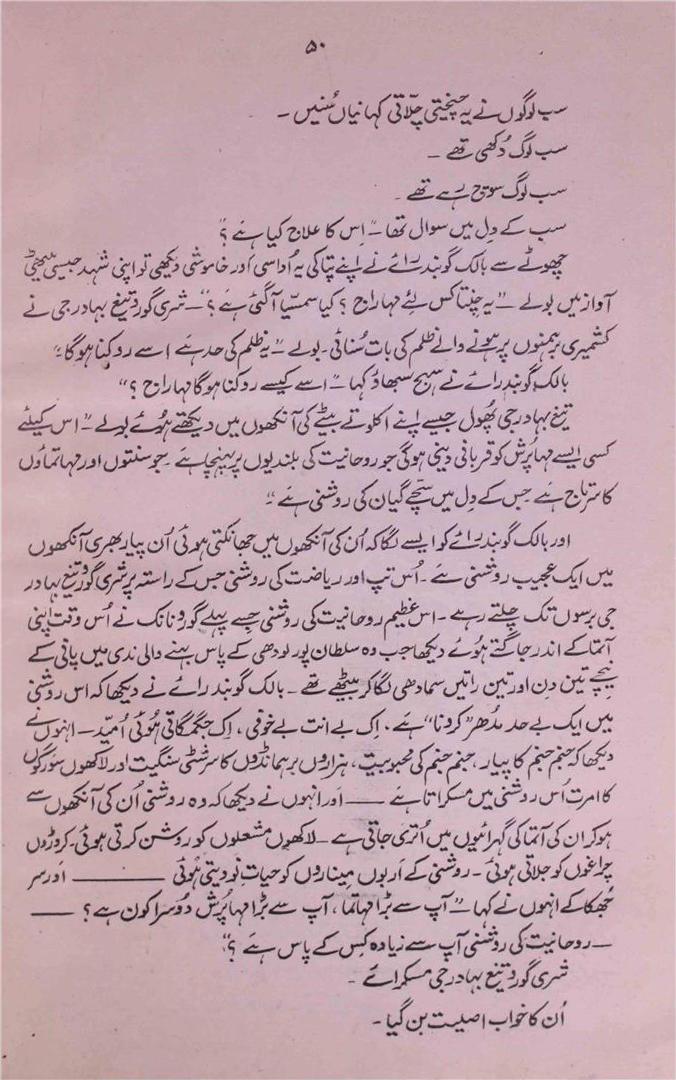 ۵۰
سب لوگوں نے یہ چیختی چلّاتی کہانیاں سُنیں ۔
سب لوگ دُکھی تھے ۔
سب لوگ سوچ رہے تھے ۔
سب کے دِل میں سوال تھا ۔ ”اِس کا علاج کیا ہے ؟“
چھوٹے سے بالک گوبند رائے نے اپنے پتا کی یہ اُداسی اور خاموشی دیکھی تو اپنی شہد جیسی میٹھی
آواز میں بولے ۔ ”یہ چنتا کس لئے مہاراج ؟ کیا سمسّیا آگئی ہے ؟“ ۔ شری گورو تیغ بہادر جی نے
کشمیری برہمنوں پر ہونے والے ظلم کی بات سُنائی ۔ بولے ۔ ”یہ ظلم کی حد ہے اسے روکنا ہوگا ۔“
بالک گوبند رائے نے سہج سبھاؤ کہا ۔ ”اسے کیسے روکنا ہوگا مہاراج ؟“
تیغ بہادر جی پھُول جیسے اپنے اکلوتے بیٹے کی آنکھوں میں دیکھتے ہوُئے بولے ۔ ”اس کیلئے
کسی ایسے مہاپُرش کو قربانی دینی ہوگی جو روحانیت کی بلندیوں پر پہنچا ہے ۔ جو سنتوں اور مہاتماؤں
کا سرتاج ہے جِس کے دِل میں سچّے گیان کی روشنی ہے ۔“
اور بالک گوبند رائے کو ایسے لگا کہ اُن کی آنکھوں میں جھانکتی ہوئی اُن پیار بھری آنکھوں
میں ایک عجیب روشنی ہے ۔ اُس تپ اور ریاضت کی روشنی جس کے راستہ پر شری گورو تیغ بہادر
جی برسوں تک چلتے رہے ۔ اس عظیم روحانیت کی روشنی جسے پہلے گورو نانک نے اُس وقت اپنی
آتما کے اندر جاگتے ہوُئے دیکھا جب وہ سلطان پور لودھی کے پاس بہنے والی ندی میں پانی کے
نیچے تین دن اور تین راتیں سمادھی لگا کر بیٹھے تھے ۔ بالک گوبند رائے نے دیکھا کہ اس روشنی
میں ایک بے حد مدُھر ”کرونا“ ہے ، اِک بے انت بے خوفی ، اِک جگمگاتی ہُوئی اُمید ۔ انہوں نے
دیکھا کہ جنم جنم کا پیار ، جنم جنم کی محبوبیت ، ہزاروں برہمانڈوں کا سرشٹی سنگیت اور لاکھوں سورگوں
کا امرت اُس روشنی میں مسکراتا ہے —— اور انہوں نے دیکھا کہ وہ روشنی اُن کی آنکھوں سے
ہوکر ان کی آتما کی گہرائیوں میں اُتری جاتی ہے ۔ لاکھوں مشعلوں کو روشن کرتی ہوئی ۔ کروڑوں
چراغوں کو جلاتی ہوئی ۔ روشنی کے اربوں میناروں کو حیاتِ نو دیتی ہُوئی —— اور سر
جُھکا کے انہوں نے کہا ۔ ”آپ سے بڑا مہاتما ، آپ سے بڑا مہاپُرش دُوسرا کون ہے ؟ ——
۔ روحانیت کی روشنی آپ سے زیادہ کِس کے پاس ہے ؟“
شری گورو تیغ بہادر جی مسکرائے ۔
اُن کا خواب اصلیت بن گیا ۔